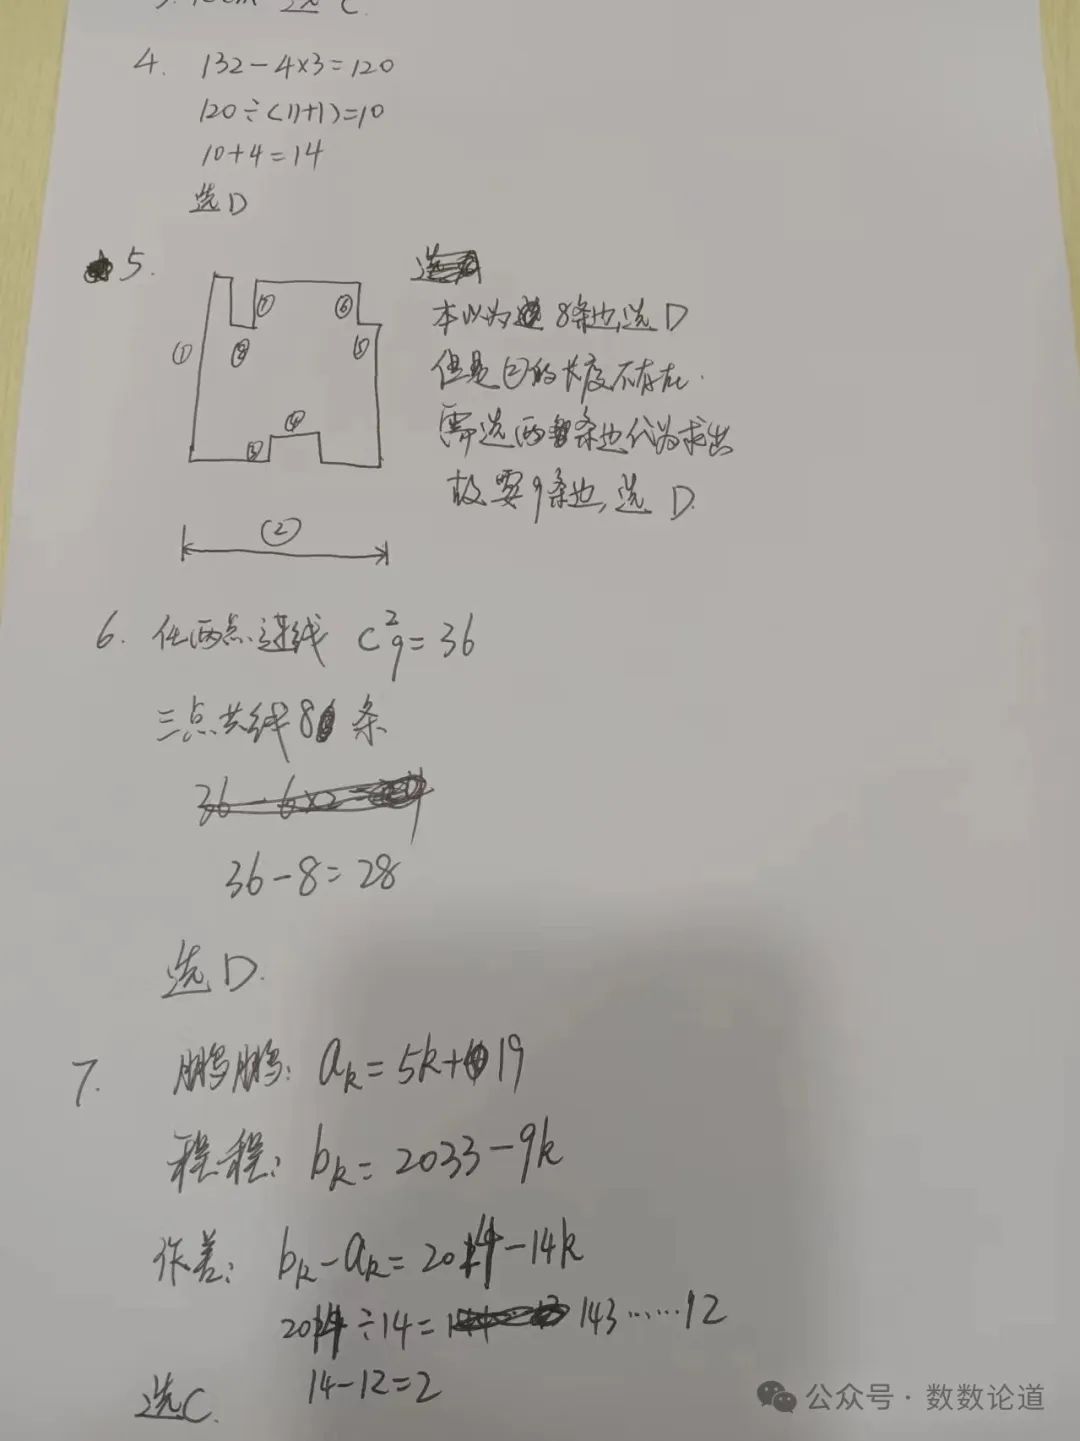 4. 132-4×3=120
120÷(11+1)=10
10+4=14
选D
5.
本以为 8条边,选D
但是②的长度不存在.
需选两条边代为求出
故要9条边,选 D.
① ⑦ ⑥
⑧ ⑤
④
③
②
6. 任两点连线 C²₉=36
三点共线8条
36-8=28
选D.
7. 鹏鹏: aₖ=5k+19
程程: bₖ=2033-9k
作差: bₖ-aₖ=2014-14k
2014÷14= 143……12
14-12=2
选C.
公众号·数数论道